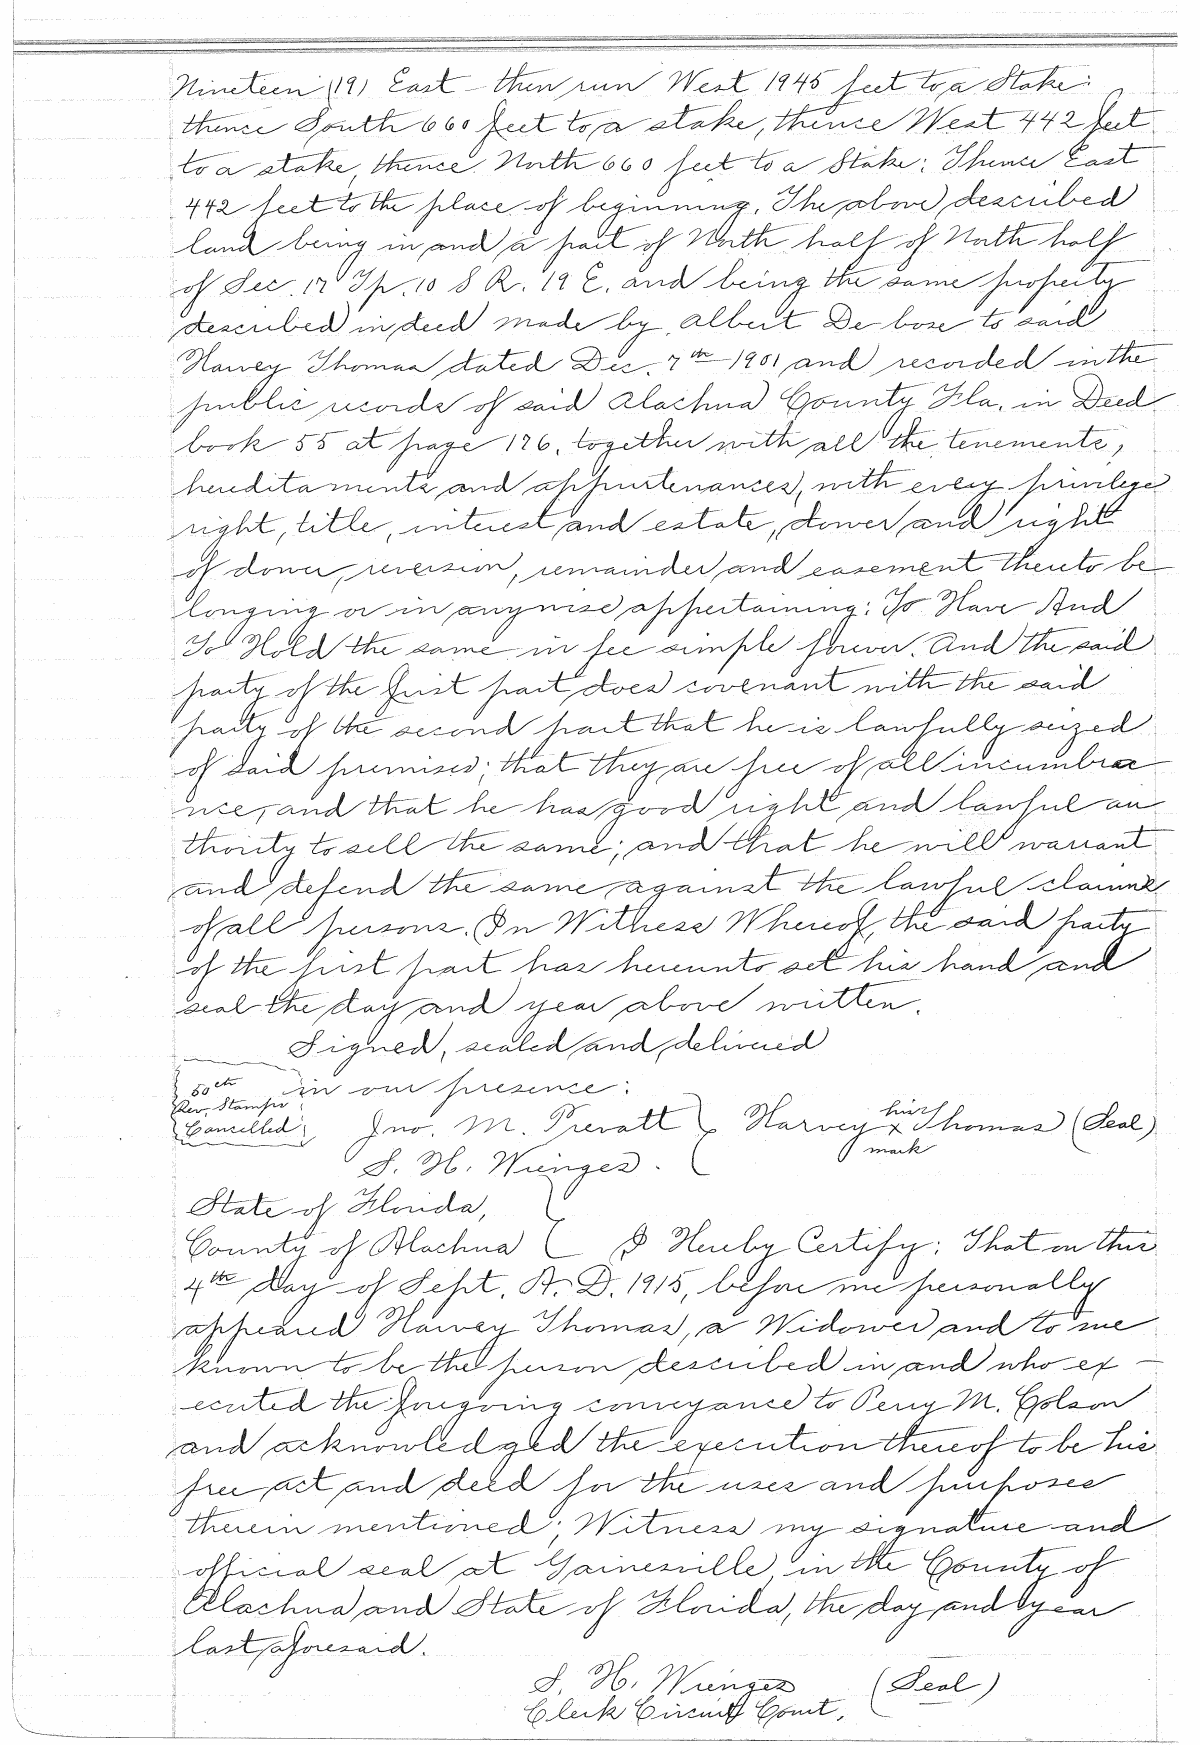 Nineteen (19) East - then run West 1945 feet to a Stake:
thence South 660 feet to a stake, thence West 442 feet
to a stake, thence North 660 feet to a Stake; Thence East
442 feet to the place of beginning. The above described
land being in and a part of North half of North half
of Sec. 17 Tp. 10 S R. 19 E. and being the same property
described in deed made by Albert De bose to said
Harvey Thomas dated Dec. 7th 1901 and recorded in the
public records of said Alachua County Fla. in Deed
book 55 at page 176, together with all the tenements,
hereditaments and appurtenances, with every privilege
right, title, interest and estate, dower and right
of dower, reversion, remainder and easement thereto be
longing or in anywise appertaining: To Have And
To Hold the same in fee simple forever. And the said
party of the first part does covenant with the said
party of the second part that he is lawfully seized
of said premises; that they are free of all incumbra
nce, and that he has good right and lawful au
thority to sell the same; and that he will warrant
and defend the same against the lawful claims
of all persons. In Witness Whereof, the said party
of the first part has hereunto set his hand and
seal the day and year above written.
Signed, sealed and delivered
50cts in our presence:
Rev. Stamps
Cancelled
Jno. M. Prevatt Harvey his x mark Thomas (Seal)
S. H. Wienges.
State of Florida,
County of Alachua I Hereby Certify: That on this
4th day of Sept. A. D. 1915, before me personally
appeared Harvey Thomas, a Widower and to me
known to be the person described in and who ex -
ecuted the foregoing conveyance to Perry M. Colson
and acknowledged the execution thereof to be his
free act and deed for the uses and purposes
therein mentioned; Witness my signature and
official seal at Gainesville in the County of
Alachua and State of Florida, the day and year
last aforesaid.
S. H. Wienges (Seal)
Clerk Circuit Court,